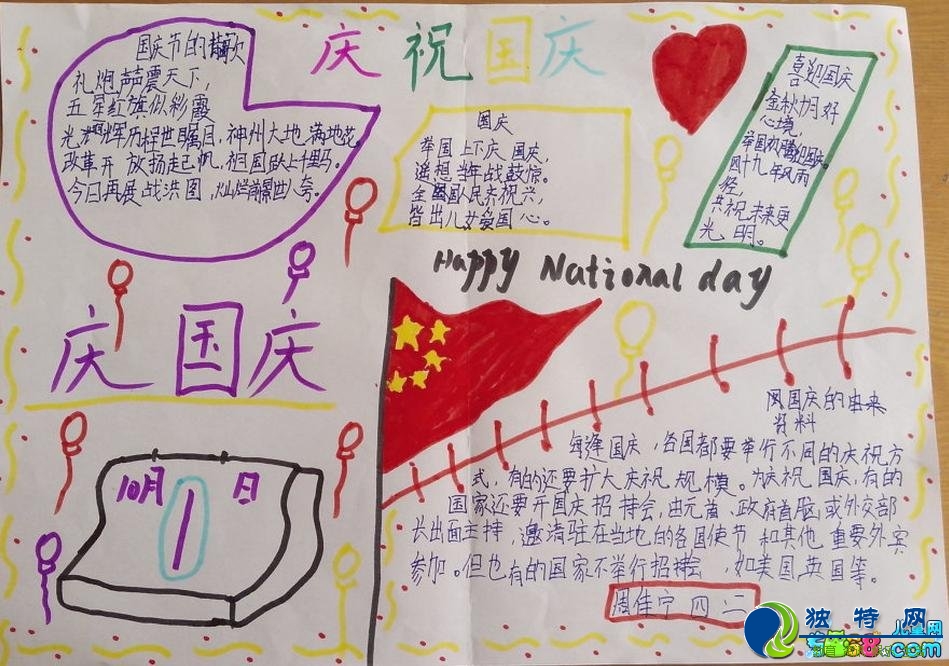 庆祝国庆
国庆节的诗歌
礼炮声声震天下,
五星红旗似彩霞
光辉历程世瞩目,神州大地满地花。
改革开放扬起帆,祖国跃上千里马。
今日再展战洪图,灿烂前景世人夸。
国庆
举国上下庆国庆,
遥想当年战鼓惊。
全国人民齐祝兴,
皆出儿女爱国心。
喜迎国庆
金秋十月好
心境,
举国欢腾迎国庆。
四十九年风雨
径,
共祝未来更
光明。
Happy National day
庆国庆
10月1日
国庆的由来
资料
每逢国庆,各国都要举行不同的庆祝方
式,有的还要扩大庆祝规模。为庆祝国庆,有的
国家还要开国庆招待会,由元首、政府首脑或外交部
长出面主持,邀请驻在当地的各国使节和其他重要外宾
参加。但也有的国家不举行招待会,如美国、英国等。
周佳宁 四.二
独特网
儿童网